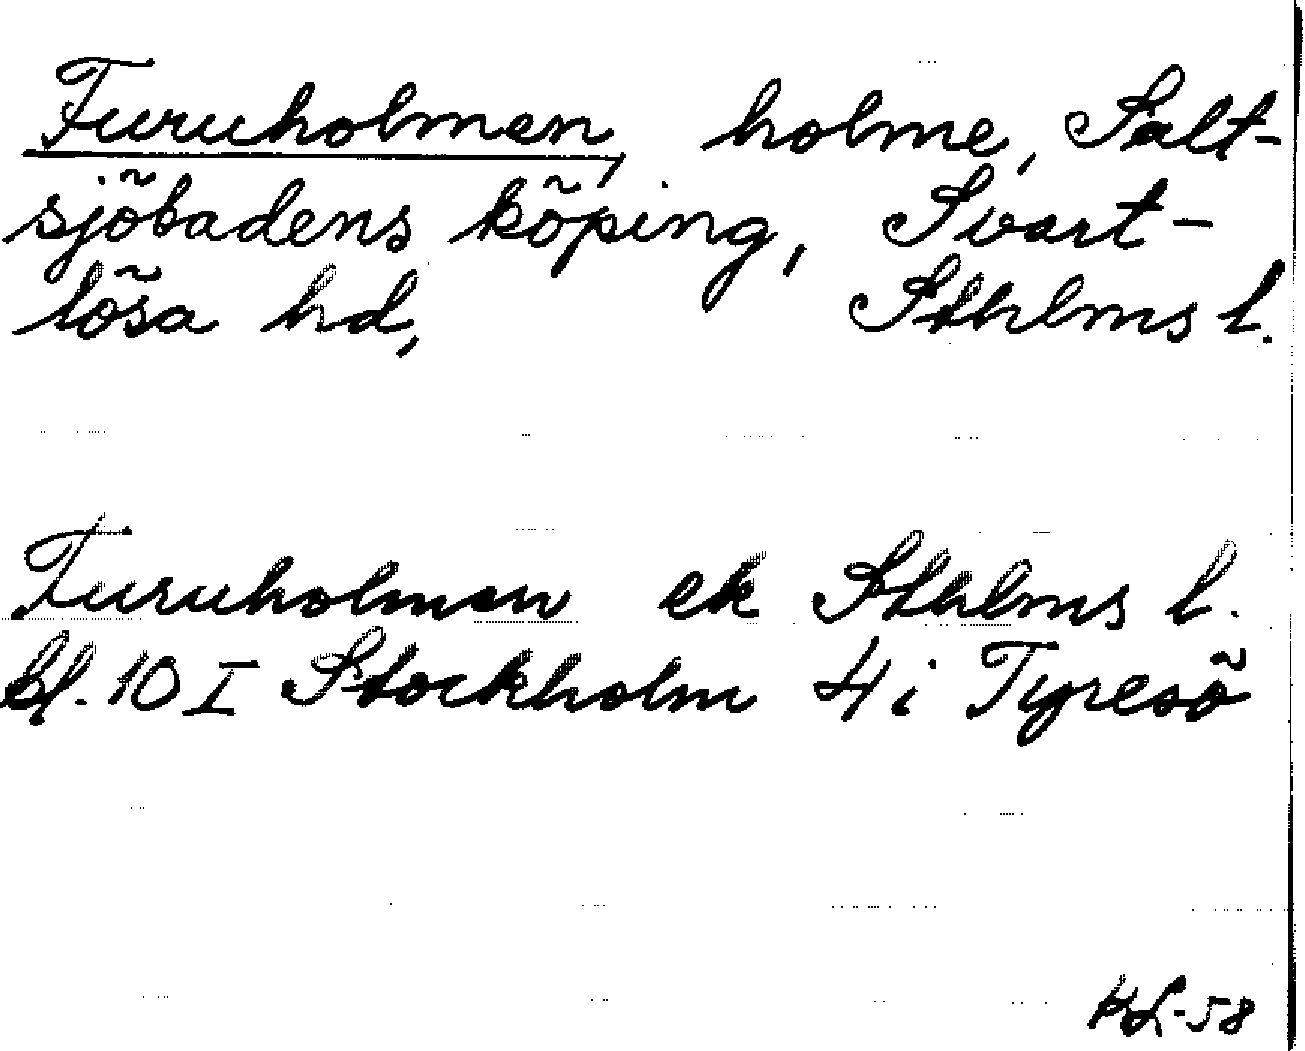 Furuholmen, holme, Salt-
sjöbadens köping, Svart-
lösa hd, Sthlms l.
Furuholmen ek Sthlms l.
bl. 10 I Stockholm 4 i Tyresö
KL-58